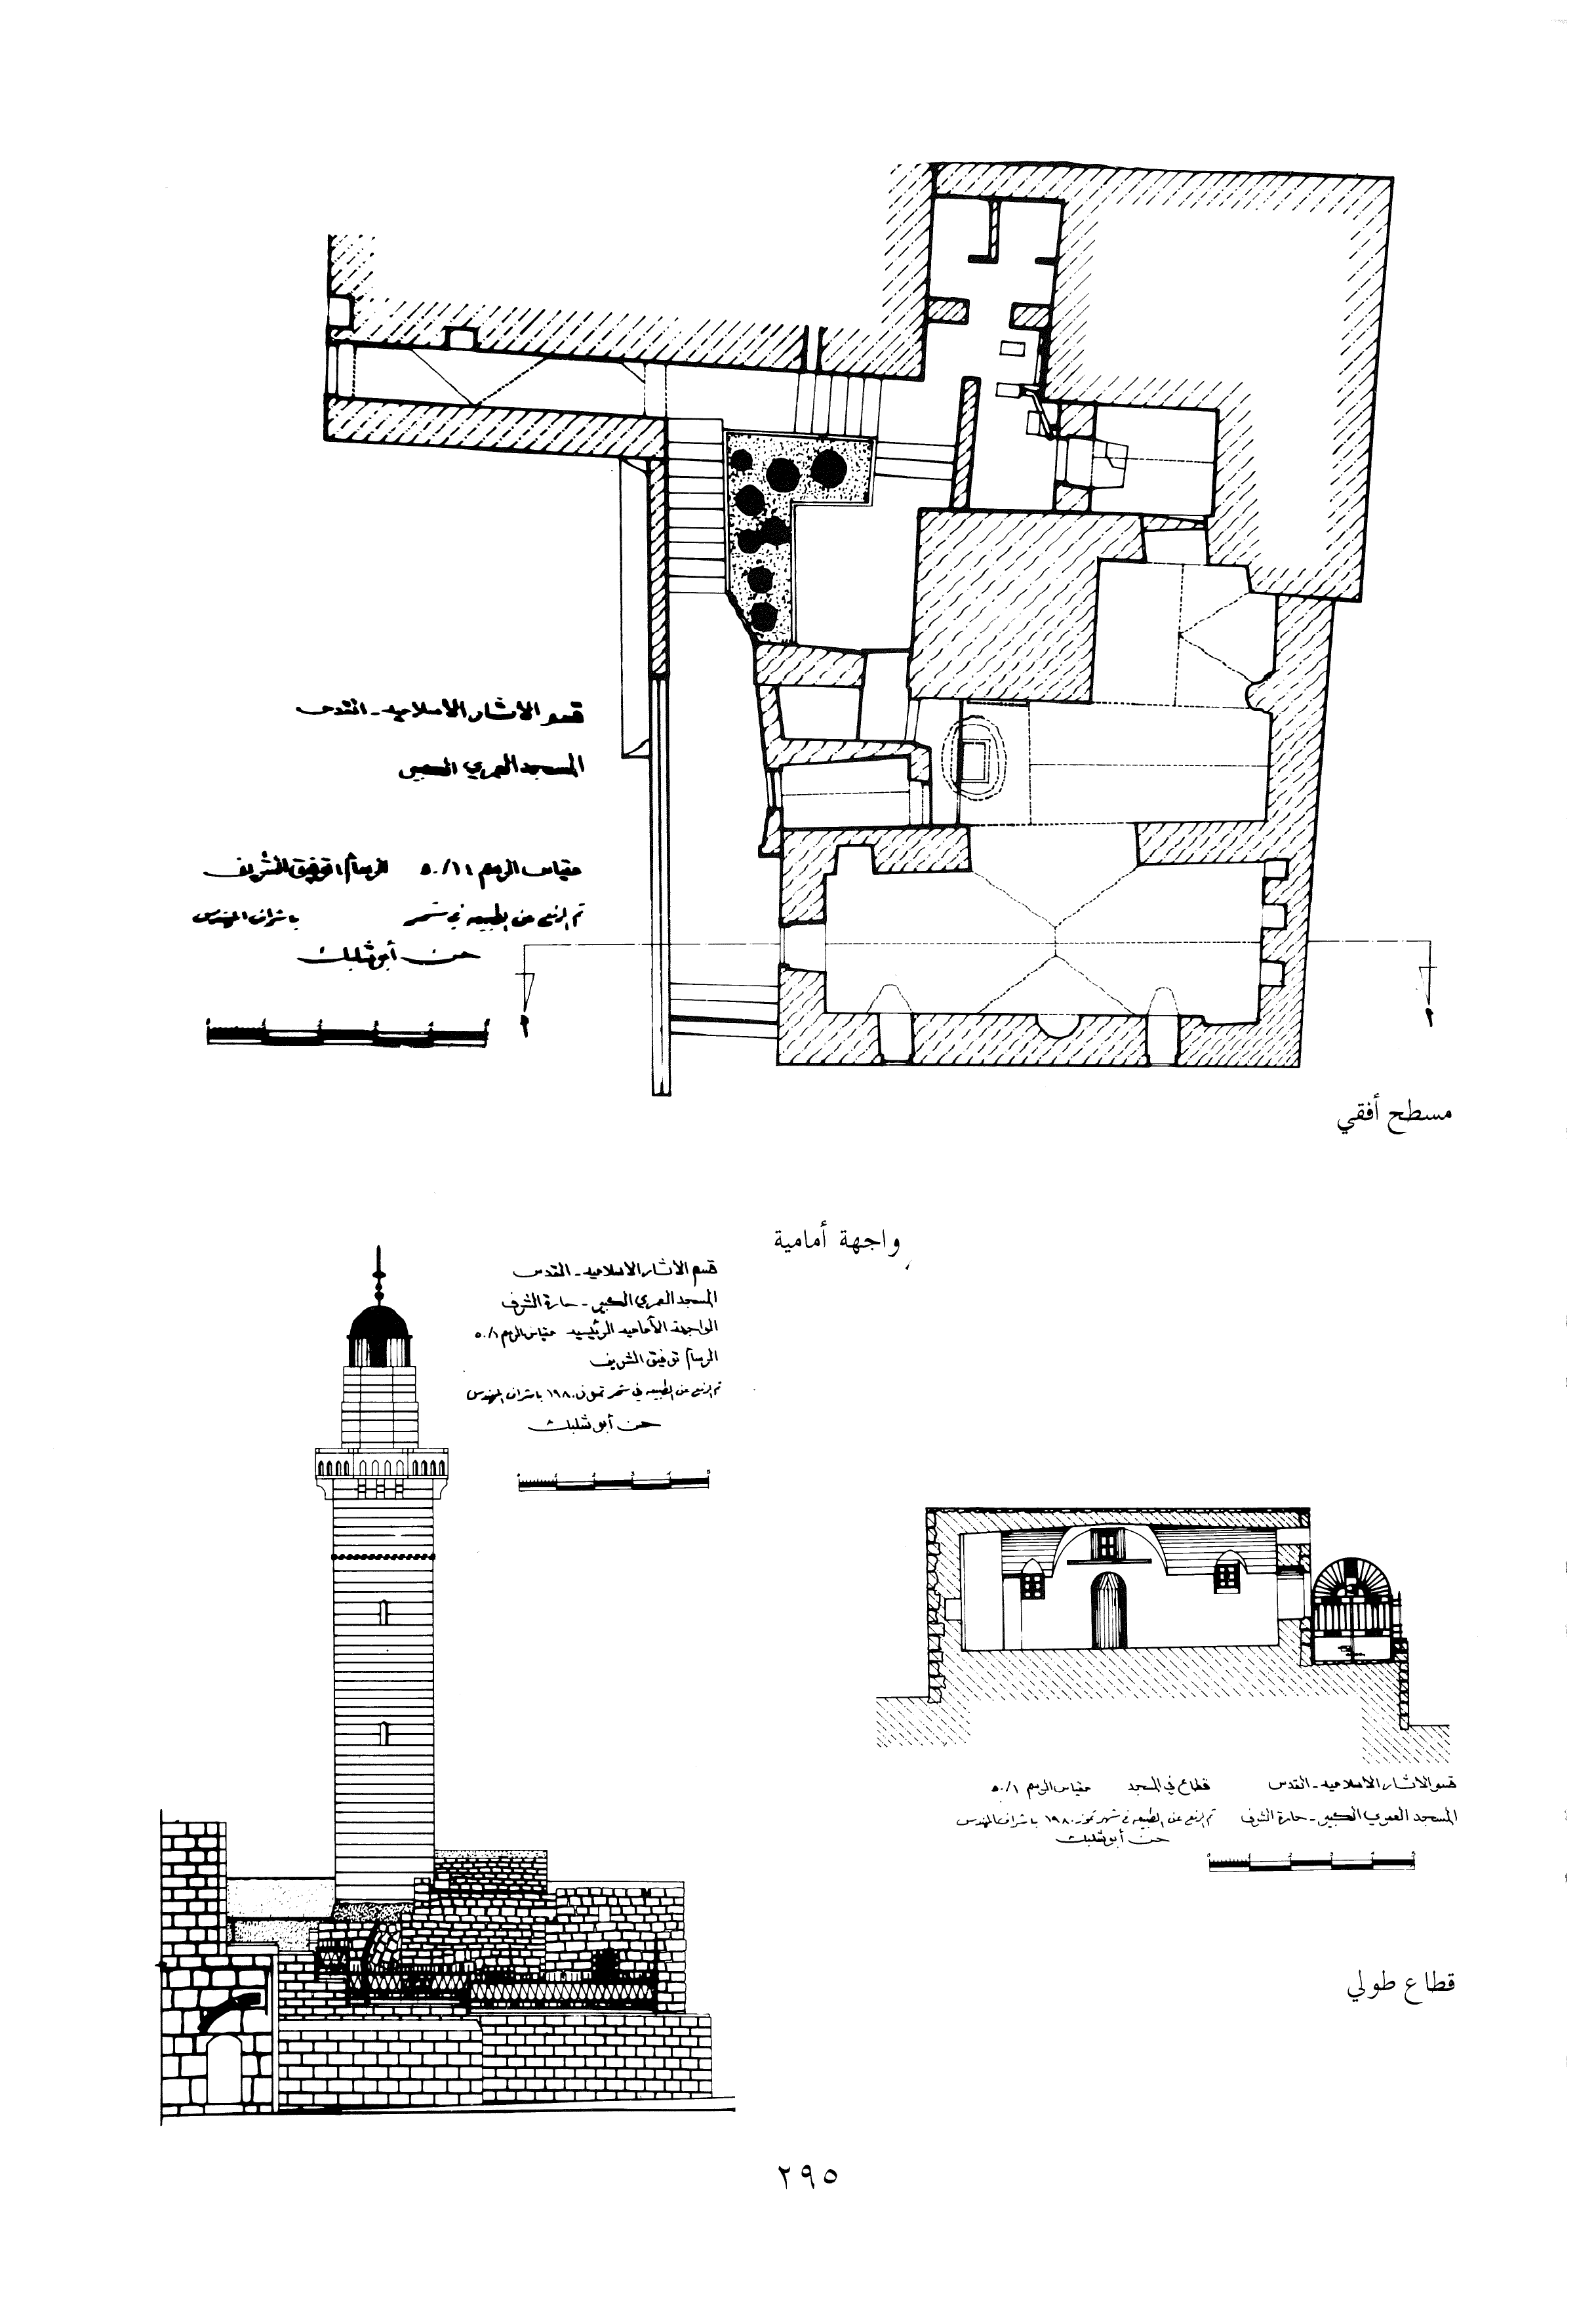 قسم الاثار الاسلاميه - القدس
المسجد العمري الكبير
مقياس الرسم ١ / ٥٠ الرسام توفيق الشريف
تم الرفع عن الطبيعه في شهر باشراف المهندس
أبو شلبك
مسطح أفقي
واجهة أمامية
قسم الاثار الاسلاميه - القدس
المسجد العمري الكبير - حارة الشرف
الواجهة الأماميه الرئيسيه مقياس الرسم ٥٠/١
الرسام توفيق الشريف
تم الرفع عن الطبيعه في شهر ١٩٨٠ باشراف المهندس
أبو شلبك
0 1 2 3 4 5
قسم الاثار الاسلاميه - القدس قطاع في المسجد مقياس الرسم ٥٠/١
المسجد العمري الكبير - حارة الشرف تم الرفع عن الطبيعه في شهر تموز ١٩٨٠ باشراف المهندس
أبو شلبك
قطاع طولي
٢٩٥